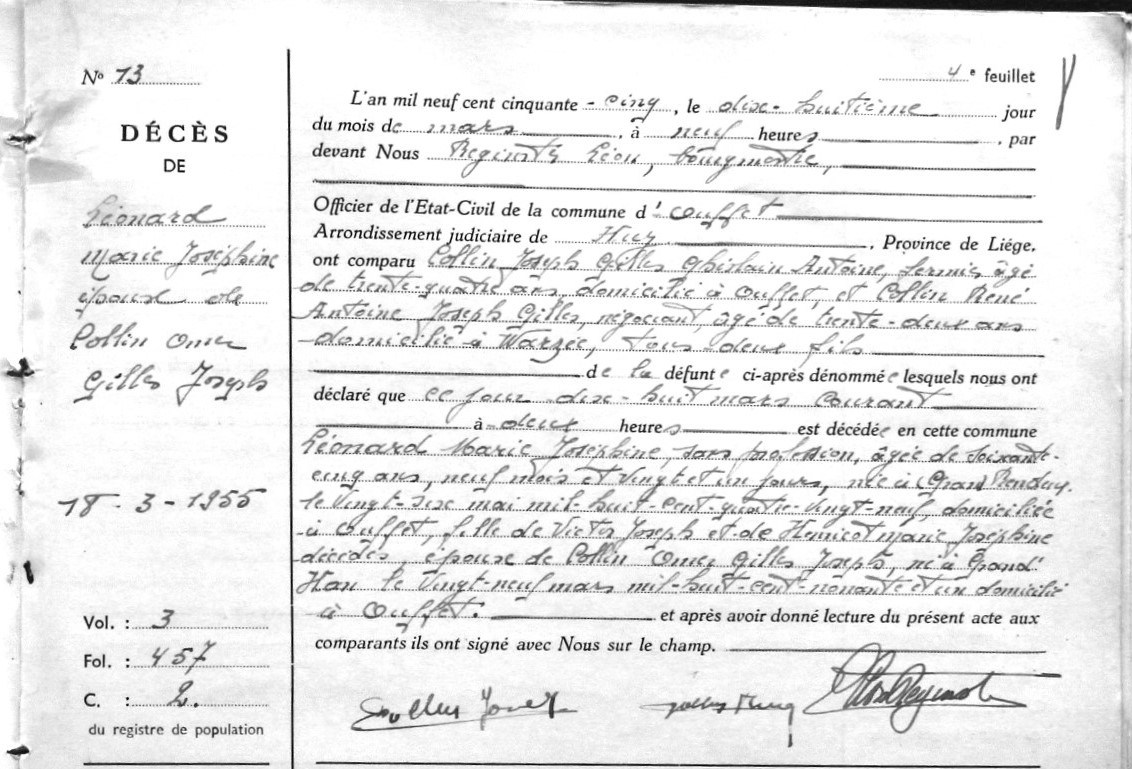 N° 13
DÉCÈS
DE
Léonard
Marie Joséphine
épouse de
Collin Omer
Gilles Joseph
18-3-1955
Vol. : 3
Fol. : 457
C. : 2.
du registre de population
4e feuillet
L'an mil neuf cent cinquante-cinq, le dix-huitième jour
du mois de mars, à neuf heures, par
devant Nous Léon, bourgmestre,
Officier de l'Etat-Civil de la commune d'Ouffet
Arrondissement judiciaire de Huy, Province de Liége.
ont comparu Collin Joseph Gilles Ghislain Antoine, fermier âgé
de trente-quatre ans, domicilié à Ouffet, et Collin René
Antoine Joseph Gilles, négociant, âgé de trente-deux ans
domicilié à Warzée, tous deux fils
de la défunte ci-après dénommée lesquels nous ont
déclaré que ce jour dix-huit mars courant
à deux heures est décédée en cette commune
Léonard Marie Joséphine, sans profession, âgée de soixante-
cinq ans, neuf mois et vingt et un jours, née à Grand
le vingt-six mai mil-huit-cent-quatre-vingt-neuf, domiciliée
à Ouffet, fille de Victor Joseph et de Henricot Marie Joséphine
décédés, épouse de Collin Omer Gilles Joseph, né à Grand'
Han le vingt-neuf mars mil-huit-cent-nonante et un domicilié
à Ouffet. et après avoir donné lecture du présent acte aux
comparants ils ont signé avec Nous sur le champ.